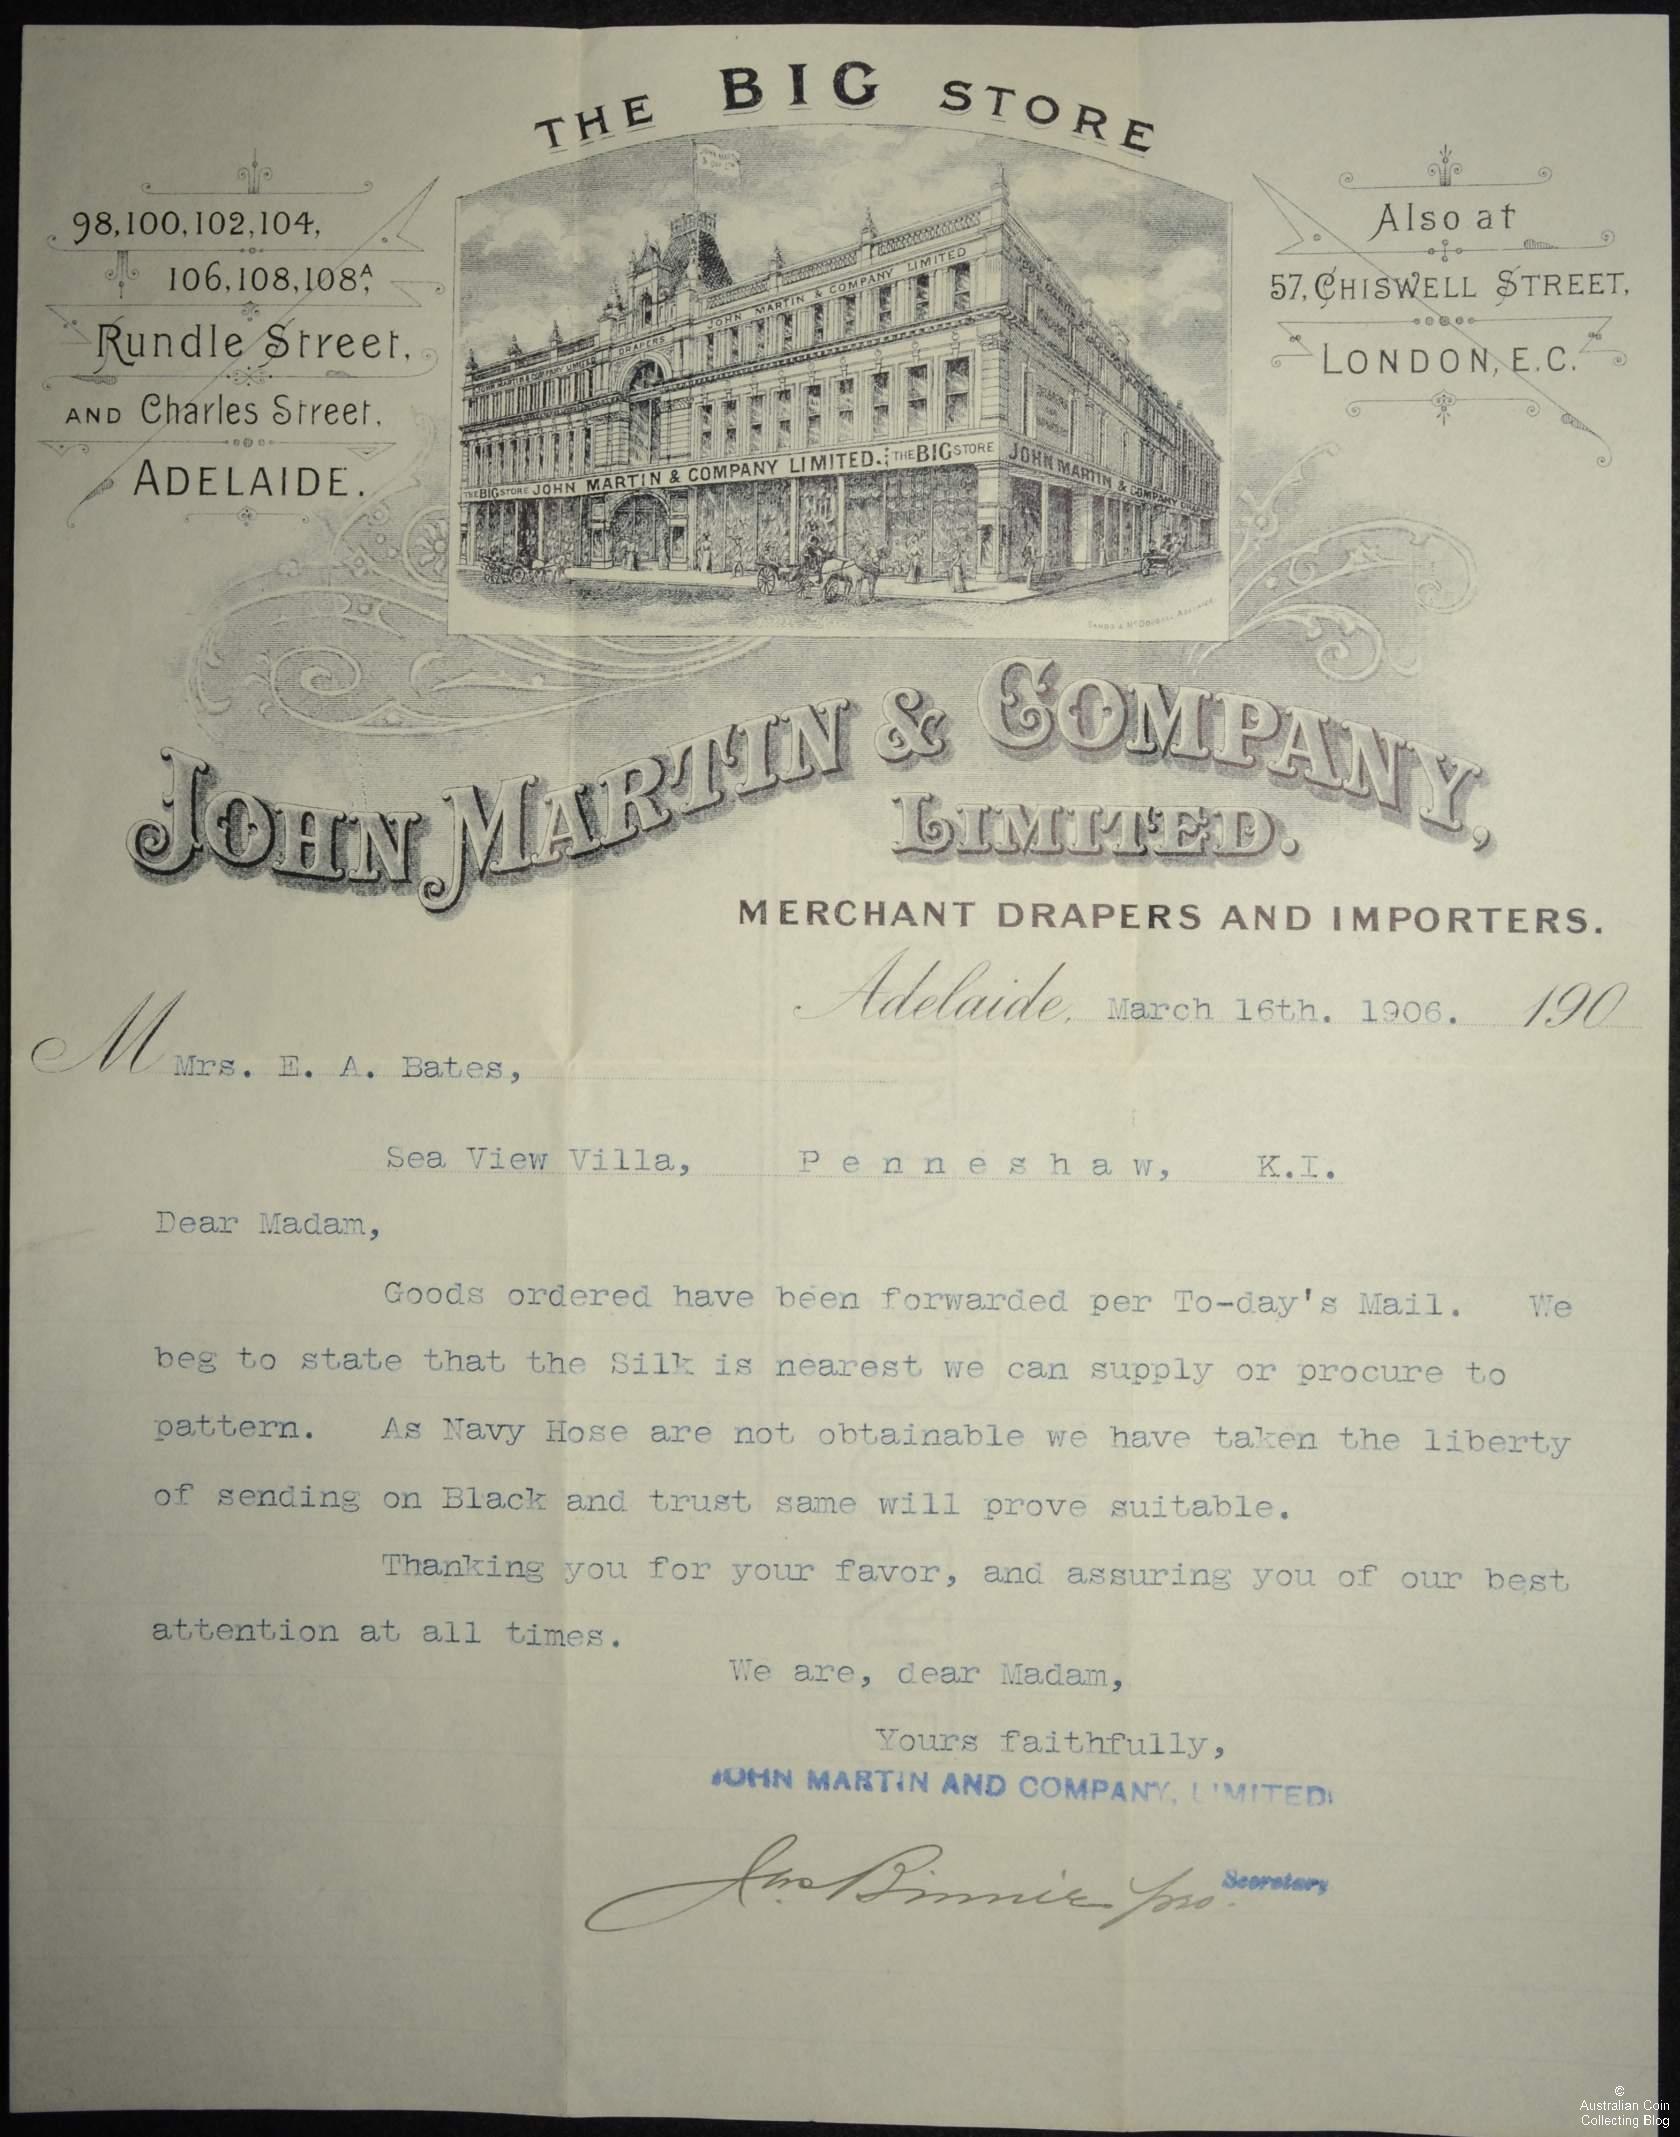 THE BIG STORE
98, 100, 102, 104,
106, 108, 108A,
Rundle Street,
AND Charles Street,
ADELAIDE.
Also at
57, CHISWELL STREET,
LONDON, E.C.
JOHN MARTIN & COMPANY LIMITED
JOHN MARTIN & COMPANY LIMITED
DRAPERS
THE BIG STORE JOHN MARTIN & COMPANY LIMITED. THE BIG STORE
JOHN MARTIN & COMPANY
SANDS & McDOUGALL ADELAIDE
JOHN MARTIN & COMPANY,
LIMITED.
MERCHANT DRAPERS AND IMPORTERS.
Adelaide, March 16th. 1906. 190
M Mrs. E. A. Bates,
Sea View Villa, Penneshaw, K.I.
Dear Madam,
Goods ordered have been forwarded per To-day's Mail. We
beg to state that the Silk is nearest we can supply or procure to
pattern. As Navy Hose are not obtainable we have taken the liberty
of sending on Black and trust same will prove suitable.
Thanking you for your favor, and assuring you of our best
attention at all times.
We are, dear Madam,
Yours faithfully,
JOHN MARTIN AND COMPANY, LIMITED
Jas Binnie pro. Secretary
©
Australian Coin
Collecting Blog